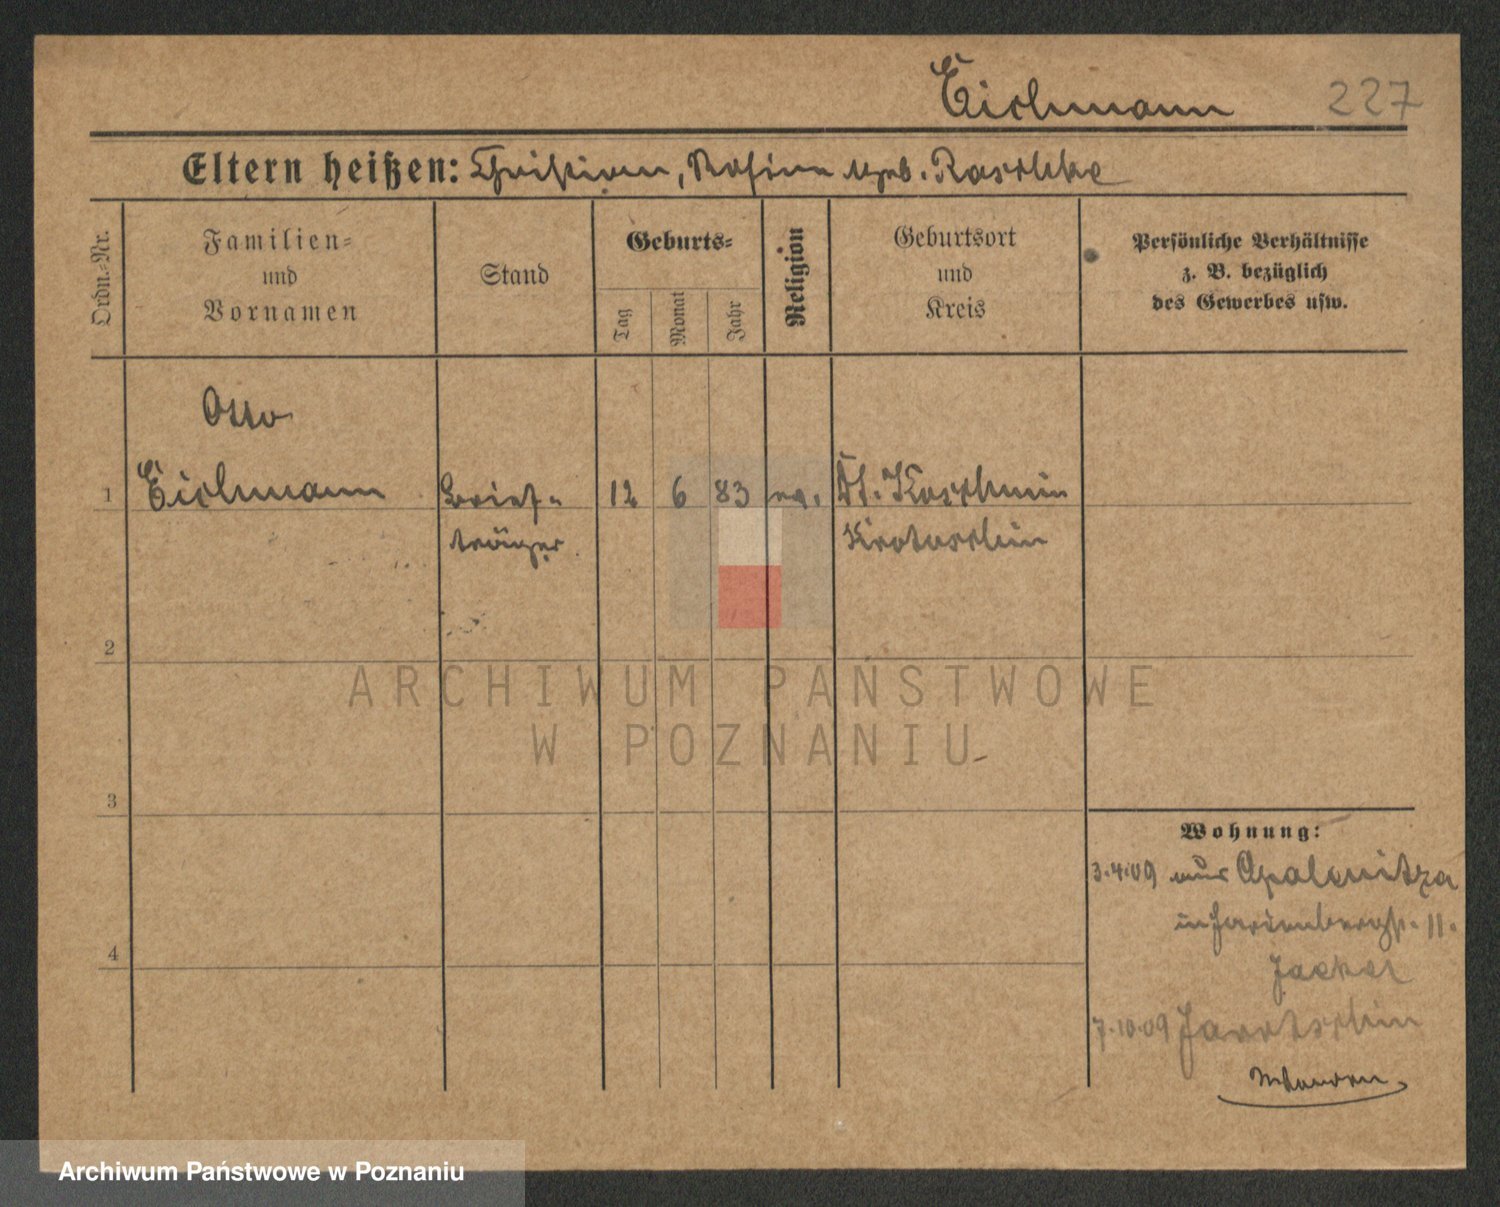 Eichmann 227
Eltern heißen: Christian, Rosina geb. Raschke
Ordn.-Nr.
Familien-
und
Vornamen
Stand
Geburts-
Tag
Monat
Jahr
Religion
Geburtsort
und
Kreis
Persönliche Verhältnisse
z. B. bezüglich
des Gewerbes usw.
Otto
1 Eichmann Brief- 12 6 83 ev. Dt. Koschmin
träger Krotoschin
2
3
4
Wohnung:
3.4.09 aus Opalenitza
11.
7.10.09 Jarotschin
ARCHIWUM PAŃSTWOWE
W POZNANIU
Archiwum Państwowe w Poznaniu